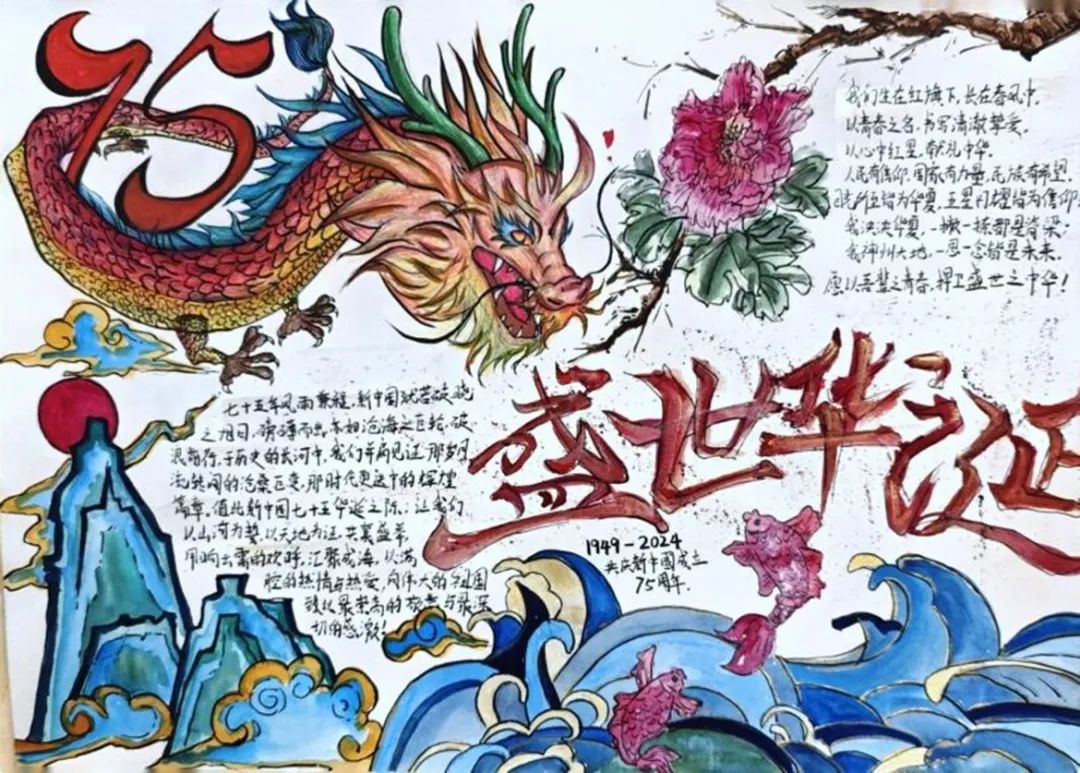 75
我们生在红旗下，长在春风中，
以青春之名，书写清澈挚爱，
以心中红星，献礼中华。
人民有信仰，国家有力量，民族有希望，
目光所至皆为华夏，五星闪耀皆为信仰
我泱泱华夏，一撇一捺都是脊梁；
我神州大地，一思一念皆是未来。
愿以吾辈之青春，捍卫盛世之中华！
盛世华诞
七十五年风雨兼程，新中国犹若破晓
之旭日，磅礴而出，亦如沧海之巨轮，破
浪前行。于历史的长河中，我们并肩见证，那岁月
流转间的沧桑巨变，那时代更迭中的辉煌
篇章。值此新中国七十五华诞之际，让我们
以山河为誓，以天地为证，共襄盛举，
用响云霄的欢呼，汇聚成海，以满
腔的热情与热爱，向伟大的祖国
致以最崇高的敬意与最深
切的感激！
1949-2024
共庆新中國成立
75周年.